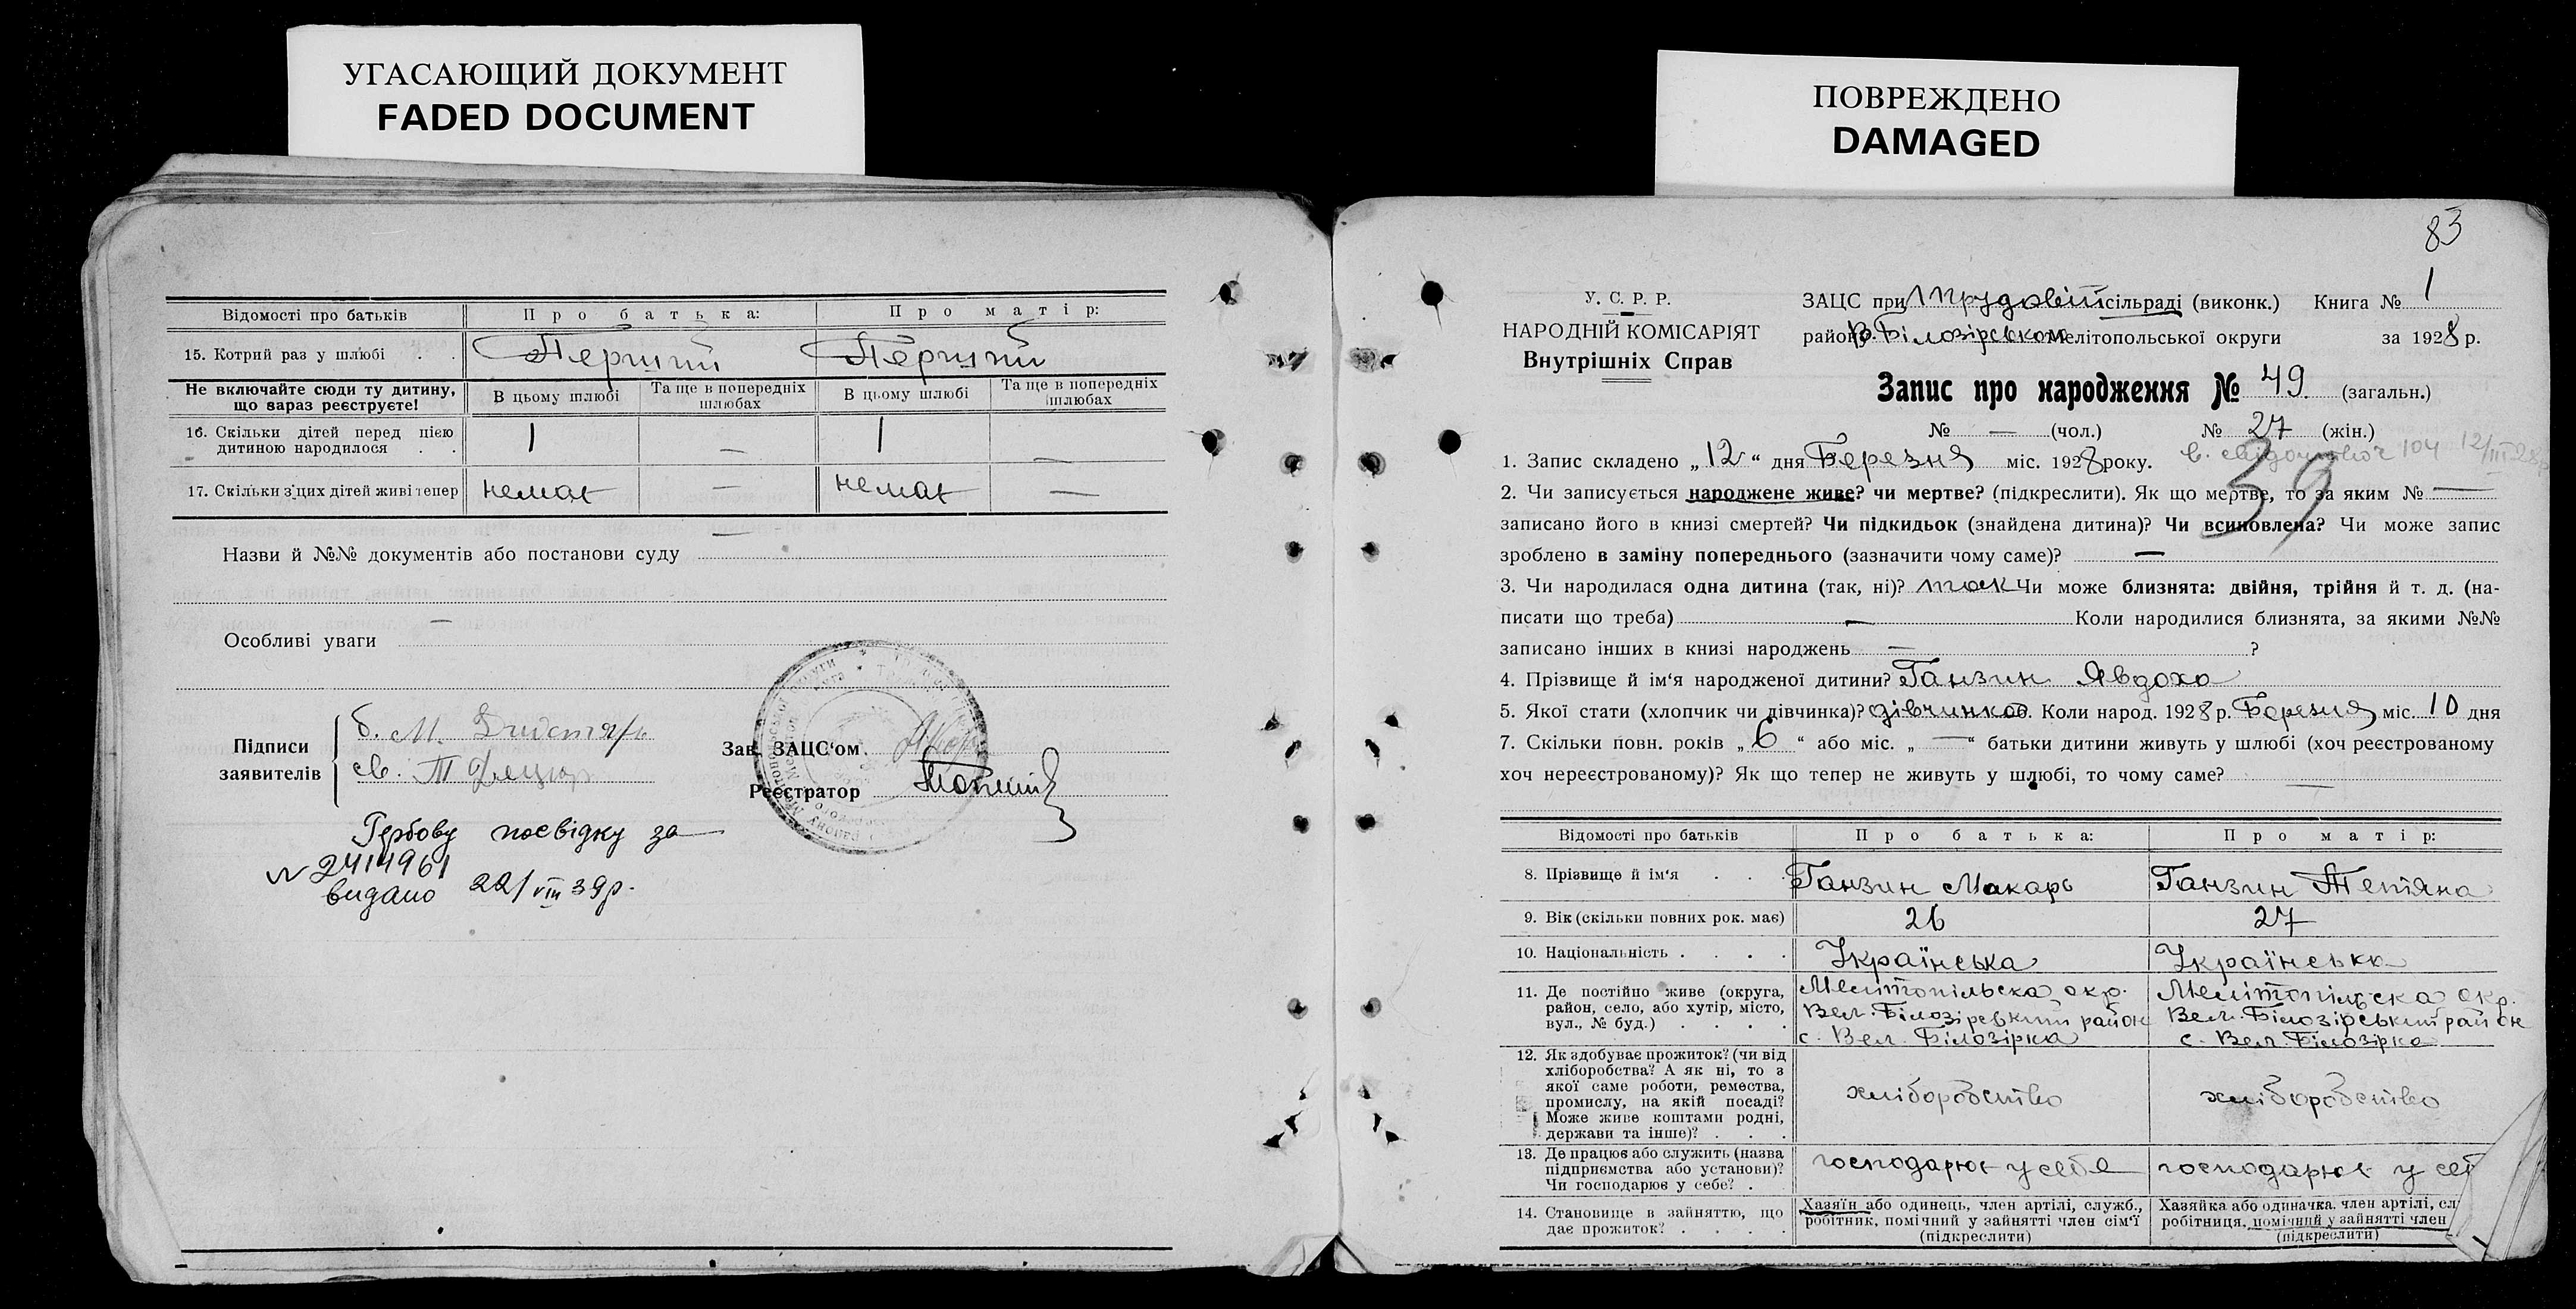 УГАСАЮЩИЙ ДОКУМЕНТ
FADED DOCUMENT
Відомості про батьків Про батька: Про матір:
15. Котрий раз у шлюбі . . Перший Перший
Не включайте сюди ту дитину, що зараз реєструєте! В цьому шлюбі Та ще в попередніх шлюбах В цьому шлюбі Та ще в попередніх шлюбах
16. Скільки дітей перед цією дитиною народилося . . 1 — 1 —
17. Скільки з цих дітей живі тепер немає — немає —
Назви й №№ документів або постанови суду —
Особливі уваги —
Підписи заявителів
б. М.
св. Т
Зав. ЗАЦС'ом
Реєстратор
Гербову посвідку за
№ 2414961
видано 22/VIII 39р.
ПОВРЕЖДЕНО
DAMAGED
83
У. С. Р. Р.
НАРОДНІЙ КОМІСАРІЯТ
Внутрішніх Справ
ЗАЦС при Трудовій сільраді (виконк.) Книга № 1
району В. Білозірськом Мелітопольської округи за 1928 р.
Запис про народження № 49 (загальн.)
№ — (чол.) № 27 (жін.)
104 12/III 28р
39
1. Запис складено „12“ дня Березня міс. 1928 року.
2. Чи записується народжене живе? чи мертве? (підкреслити). Як що мертве, то за яким № —
записано його в книзі смертей? Чи підкидьок (знайдена дитина)? Чи всиновлена? Чи може запис
зроблено в заміну попереднього (зазначити чому саме)? —
3. Чи народилася одна дитина (так, ні)? так Чи може близнята: двійня, трійня й т. д. (на-
писати що треба) — Коли народилися близнята, за якими №№
записано інших в книзі народжень — ?
4. Прізвище й ім'я народженої дитини? Ганзин Явдоха
5. Якої стати (хлопчик чи дівчинка)? дівчинка 6. Коли народ. 1928 р. Березня міс. 10 дня
7. Скільки повн. років „6“ або міс. „—“ батьки дитини живуть у шлюбі (хоч реєстрованому
хоч нереєстрованому)? Як що тепер не живуть у шлюбі, то чому саме? —
Відомості про батьків Про батька: Про матір:
8. Прізвище й ім'я . . . Ганзин Макарь Ганзин Тетяна
9. Вік (скільки повних рок. має) 26 27
10. Національність . . . . Українська Українська
11. Де постійно живе (округа, район, село, або хутір, місто, вул., № буд.) . . . . Мелітопільска окр. Вел. Білозірський район с. Вел. Білозірка Мелітопільска окр. Вел. Білозірський район с. Вел. Білозірка
12. Як здобуває прожиток? (чи від хліборобства? А як ні, то з якої саме роботи, ремества, промислу, на якій посаді? Може живе коштами родні, держави та інше)? . . . хліборобство хліборобство
13. Де працює або служить (назва підприємства або установи)? Чи господарює у себе? . господарює у себе господарює у себ
14. Становище в зайняттю, що дає прожиток? . . . . Хазяїн або одинець, член артілі, служб., робітник, помічний у зайнятті член сім'ї (підкреслити) Хазяйка або одиначка, член артілі, сл робітниця, помічний у зайнятті член (підкреслити)